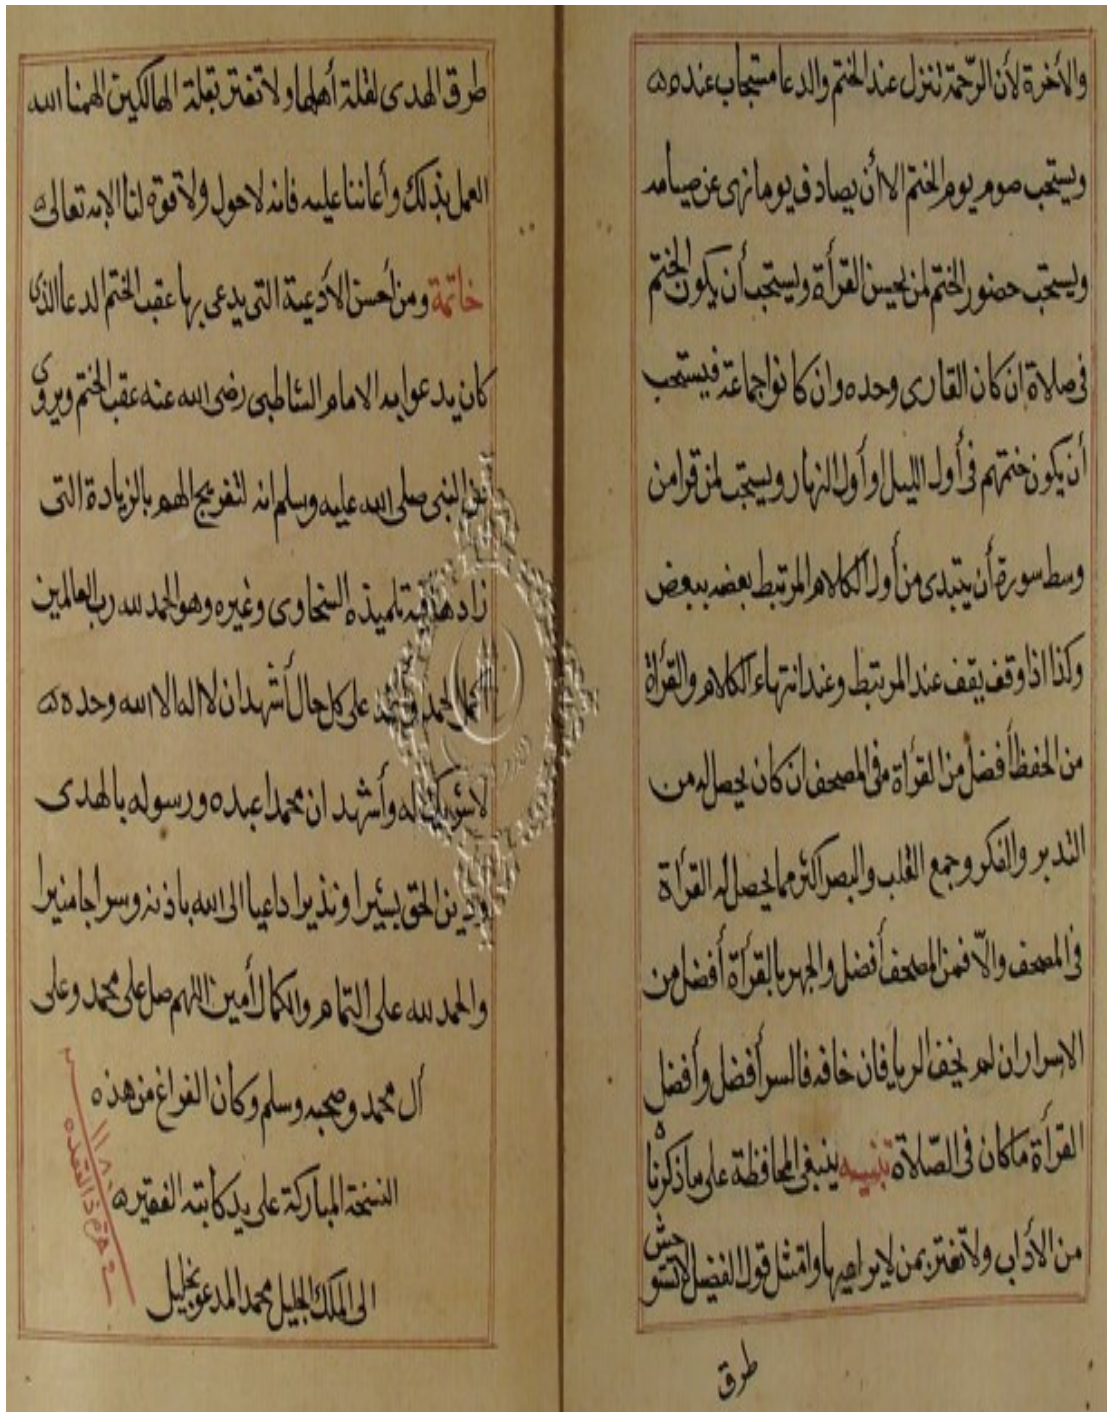 والأخرة لأن الرّحمة تنزل عند الختم والدعا مستجاب عنده
ويستحب صوم يوم الختم الا أن يصادف يوما نهى عن صيامه
ويستحب حضور الختم لمن يحسن القرأة ويستحب أن يكون الختم
فى صلاة ان كان القارى وحده وان كانوا جماعة فيستحب
أن يكون ختمهم فى أول الليل أو أول النهار ويستحب لمن قرا من
وسط سورة أن يبتدى من أول الكلام المرتبط بعضه ببعض
وكذا اذا وقف يقف عند المرتبط وعند انتهاء الكلام والقرأة
من الحفظ أفضل من القرأة فى المصحف ان كان يحصل له من
التدبر والفكر وجمع القلب والبصر اكثر مما يحصل له القرأة
فى المصحف والّا فمن المصحف أفضل والجهر بالقرأة أفضل من
الاسرار ان لم يخف الريا فان خافه فالسر أفضل وأفضل
القرأة ما كان فى الصّلاة تنبيه ينبغى المحافظة على ما ذكرناه
من الأداب ولا تغتر بمن لا يراعيها وامتثل قول الفضيل لا تستوحش
طرق
طرق الهدى لقلة أهلها ولا تغتر بقلة الهالكين الهمنا الله
العمل بذلك وأعاننا عليه فانه لا حول ولا قوة لنا الا به تعالى
خاتمة ومن أحسن الأدعية التى يدعى بها عقب الختم الدعا الذى
كان يدعوا به الامام الشاطبى رضى الله عنه عقب الختم ويروى
عن النبى صلى الله عليه وسلم انه لتفريج الهم بالزيادة التى
زادها فيه تلميذه السخاوى وغيره وهو الحمد لله رب العالمين
أكمل الحمد على كل حال أشهد ان لا اله الا الله وحده
لا شريك له وأشهد ان محمدا عبده ورسوله بالهدى
ودين الحق بشيرا ونذيرا داعيا الى الله باذنه وسراجا منيرا
والحمد لله على التمام والكمال أمين اللهم صل على محمد وعلى
أل محمد وصحبه وسلم وكان الفراغ من هذه
النسخة المباركة على يد كاتبه الفقير
الى الملك الجليل محمد المدعو بخليل